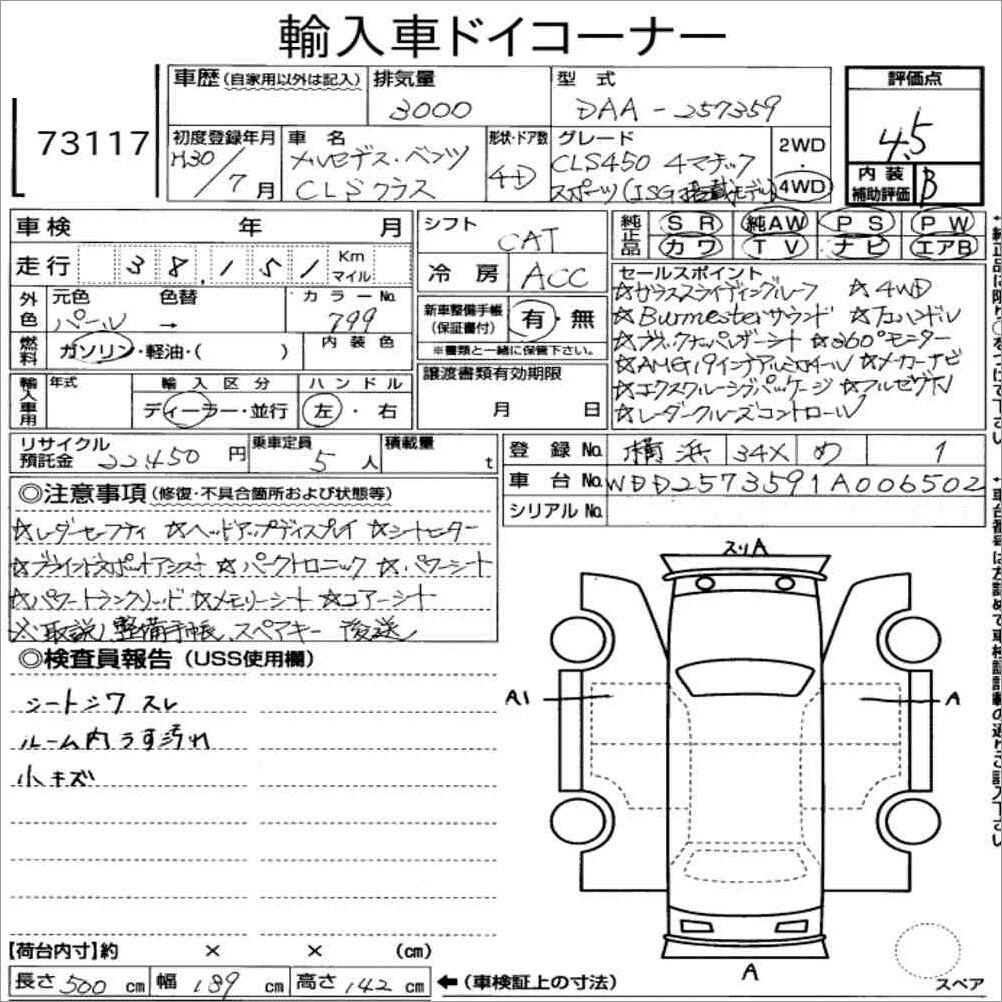 輸入車ドイコーナー
73117
車歴(自家用以外は記入)
排気量
3000
型式
DAA-257359
評価点
4.5
初度登録年月
H30/7月
車名
メルセデス・ベンツ
CLSクラス
形状・ドア数
4D
グレード
CLS450 4マチック
スポーツ(ISG搭載モデル)
2WD
・
4WD
内装
補助評価
B
車検 年 月
走行 38,151 Km
マイル
シフト
CAT
冷房
ACC
純正品
SR 純AW PS PW
カワ TV ナビ エアB
外色
元色 色替
パール →
カラーNo.
799
燃料
ガソリン・軽油・( )
内装色
新車整備手帳
(保証書付)
有・無
※書類と一緒に保管下さい。
セールスポイント
☆ガラススライディングルーフ ☆4WD
☆Burmesterサウンド ☆左ハンドル
☆ブラックナッパレザーシート ☆360°モニター
☆AMG19インチアルミホイール ☆メーカーナビ
☆エクスクルーシブパッケージ ☆フルセグTV
☆レーダークルーズコントロール
輸入車用
年式
輸入区分
ディーラー・並行
ハンドル
左・右
譲渡書類有効期限
月 日
リサイクル
預託金
22,450円
乗車定員
5人
積載量
t
登録No.
横浜 34X め 1
車台No.
WDD2573591A006502
シリアルNo.
◎注意事項(修復・不具合箇所および状態等)
☆レーダーセーフティ ☆ヘッドアップディスプレイ ☆シートヒーター
☆ブラインドスポットアシスト ☆パークトロニック ☆パワーシート
☆パワートランクリッド ☆メモリーシート ☆エアーシート
※取説、整備手帳、スペアキー 後送
◎検査員報告(USS使用欄)
シートシワ スレ
ルーム内うす汚れ
小キズ
スリA
A1
A
A
スペア
【荷台内寸】約 × × (cm)
長さ 500 cm 幅 189 cm 高さ 142 cm ←(車検証上の寸法)